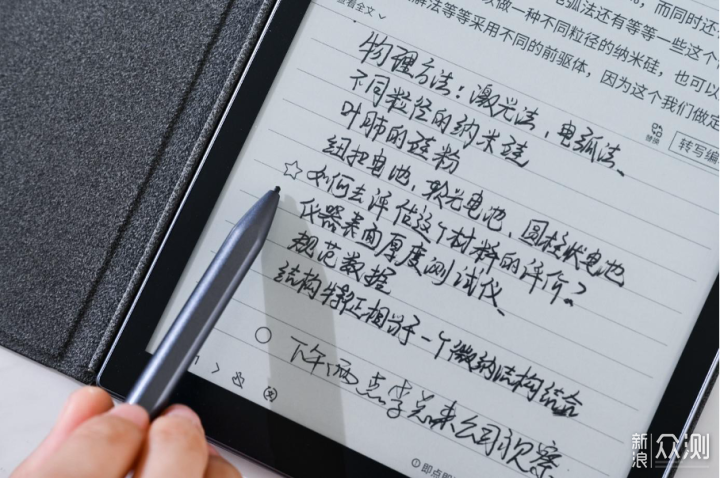 电弧法还有等等一些这个
以做一种不同粒径的纳米硅，也可以
解法等等采用不同的前驱体，因为这个我们做定
查看全文
替换
转写编
物理方法：激光法，电弧法、
不同粒径的纳米硅
的硅粉
纽扣电池，软光电池，圆柱状电池
☆如何去评估这个材料的评价？
仪器表面厚度测试仪、
规范数据
结构特征相当于一个微纳结构结合
下午两点李总来公司视察
即点即
新浪众测